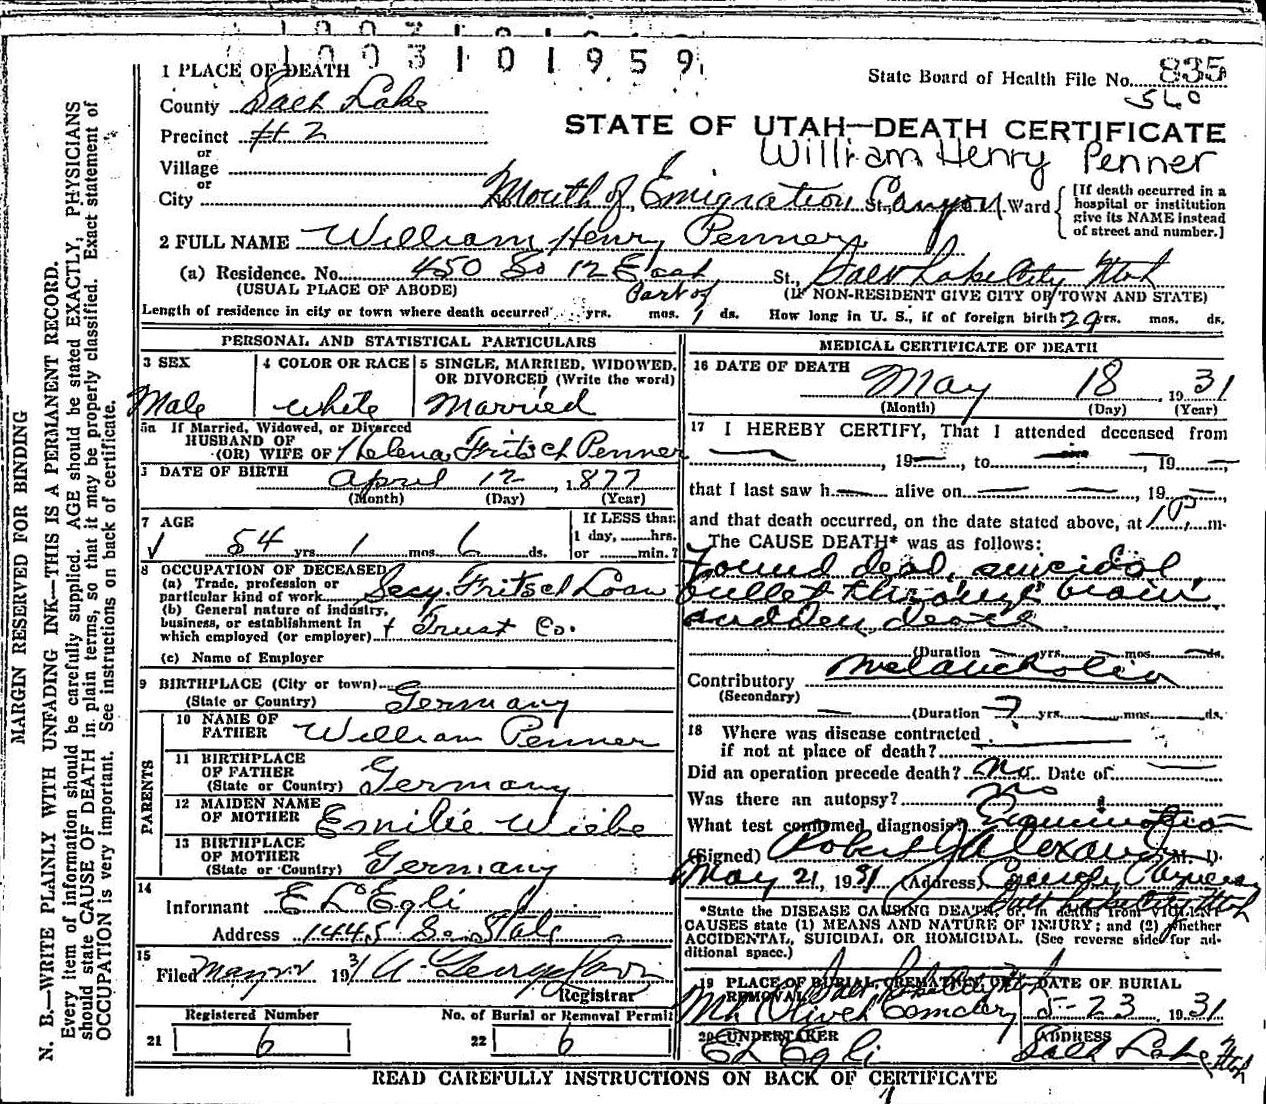 1003101959
1 PLACE OF DEATH
State Board of Health File No. 835
560
County Salt Lake
Precinct #2
or
Village
or
City
STATE OF UTAH—DEATH CERTIFICATE
William Henry Penner
Mouth of Emigration St., Canyon Ward
[If death occurred in a hospital or institution give its NAME instead of street and number.]
2 FULL NAME William Henry Penner
(a) Residence. No. 450 So 12 East St., Salt Lake City Utah
(USUAL PLACE OF ABODE) (If NON-RESIDENT GIVE CITY OR TOWN AND STATE)
Part of
Length of residence in city or town where death occurred yrs. mos. 1 ds. How long in U. S., if of foreign birth? 29 yrs. mos. ds.
PERSONAL AND STATISTICAL PARTICULARS
3 SEX
Male
4 COLOR OR RACE
White
5 SINGLE, MARRIED, WIDOWED, OR DIVORCED (Write the word)
Married
5a If Married, Widowed, or Divorced
HUSBAND OF
(OR) WIFE OF Helena Fritsch Penner
DATE OF BIRTH April 12, 1877
(Month) (Day) (Year)
7 AGE
54 yrs. 1 mos. 6 ds.
If LESS than
1 day, hrs.
or min.?
8 OCCUPATION OF DECEASED
(a) Trade, profession or
particular kind of work Secy. Fritsch Loan
(b) General nature of industry,
business, or establishment in
which employed (or employer) & Trust Co.
(c) Name of Employer
9 BIRTHPLACE (City or town)
(State or Country) Germany
PARENTS
10 NAME OF
FATHER William Penner
11 BIRTHPLACE
OF FATHER
(State or Country) Germany
12 MAIDEN NAME
OF MOTHER Emilie Wiebe
13 BIRTHPLACE
OF MOTHER
(State or Country) Germany
14
Informant E L Egli
Address 1445 So. State
15
Filed May 1931 A. George
Registrar
Registered Number
21 6
No. of Burial or Removal Permit
22 6
MEDICAL CERTIFICATE OF DEATH
16 DATE OF DEATH
May 18 1931
(Month) (Day) (Year)
17 I HEREBY CERTIFY, That I attended deceased from
, 19 , to , 19 ,
that I last saw h alive on , 19 ,
and that death occurred, on the date stated above, at 1 P. m.
The CAUSE DEATH* was as follows:
Found dead, suicidal
bullet through brain.
sudden death
(Duration yrs. mos. ds.
Contributory Melancholia
(Secondary)
(Duration ? yrs. mos. ds.
18 Where was disease contracted
if not at place of death?
Did an operation precede death? No. Date of
Was there an autopsy? No
What test confirmed diagnosis? Examination
(Signed) Robert J Alexander M. D.
May 21, 1931 (Address) County Physician
Salt Lake City Utah
*State the DISEASE CAUSING DEATH, or, in deaths from VIOLENT
CAUSES state (1) MEANS AND NATURE OF INJURY; and (2) whether
ACCIDENTAL, SUICIDAL OR HOMICIDAL. (See reverse side for ad-
ditional space.)
19 PLACE OF BURIAL, CREMATION, OR REMOVAL
Salt Lake City Utah
Mt. Olivet Cemetery
DATE OF BURIAL
5-23, 1931
20 UNDERTAKER
E L Egli
ADDRESS
Salt Lake Utah
READ CAREFULLY INSTRUCTIONS ON BACK OF CERTIFICATE
MARGIN RESERVED FOR BINDING
N. B.—WRITE PLAINLY WITH UNFADING INK—THIS IS A PERMANENT RECORD.
Every item of information should be carefully supplied. AGE should be stated EXACTLY, PHYSICIANS
should state CAUSE OF DEATH in plain terms, so that it may be properly classified. Exact statement of
OCCUPATION is very important. See instructions on back of certificate.